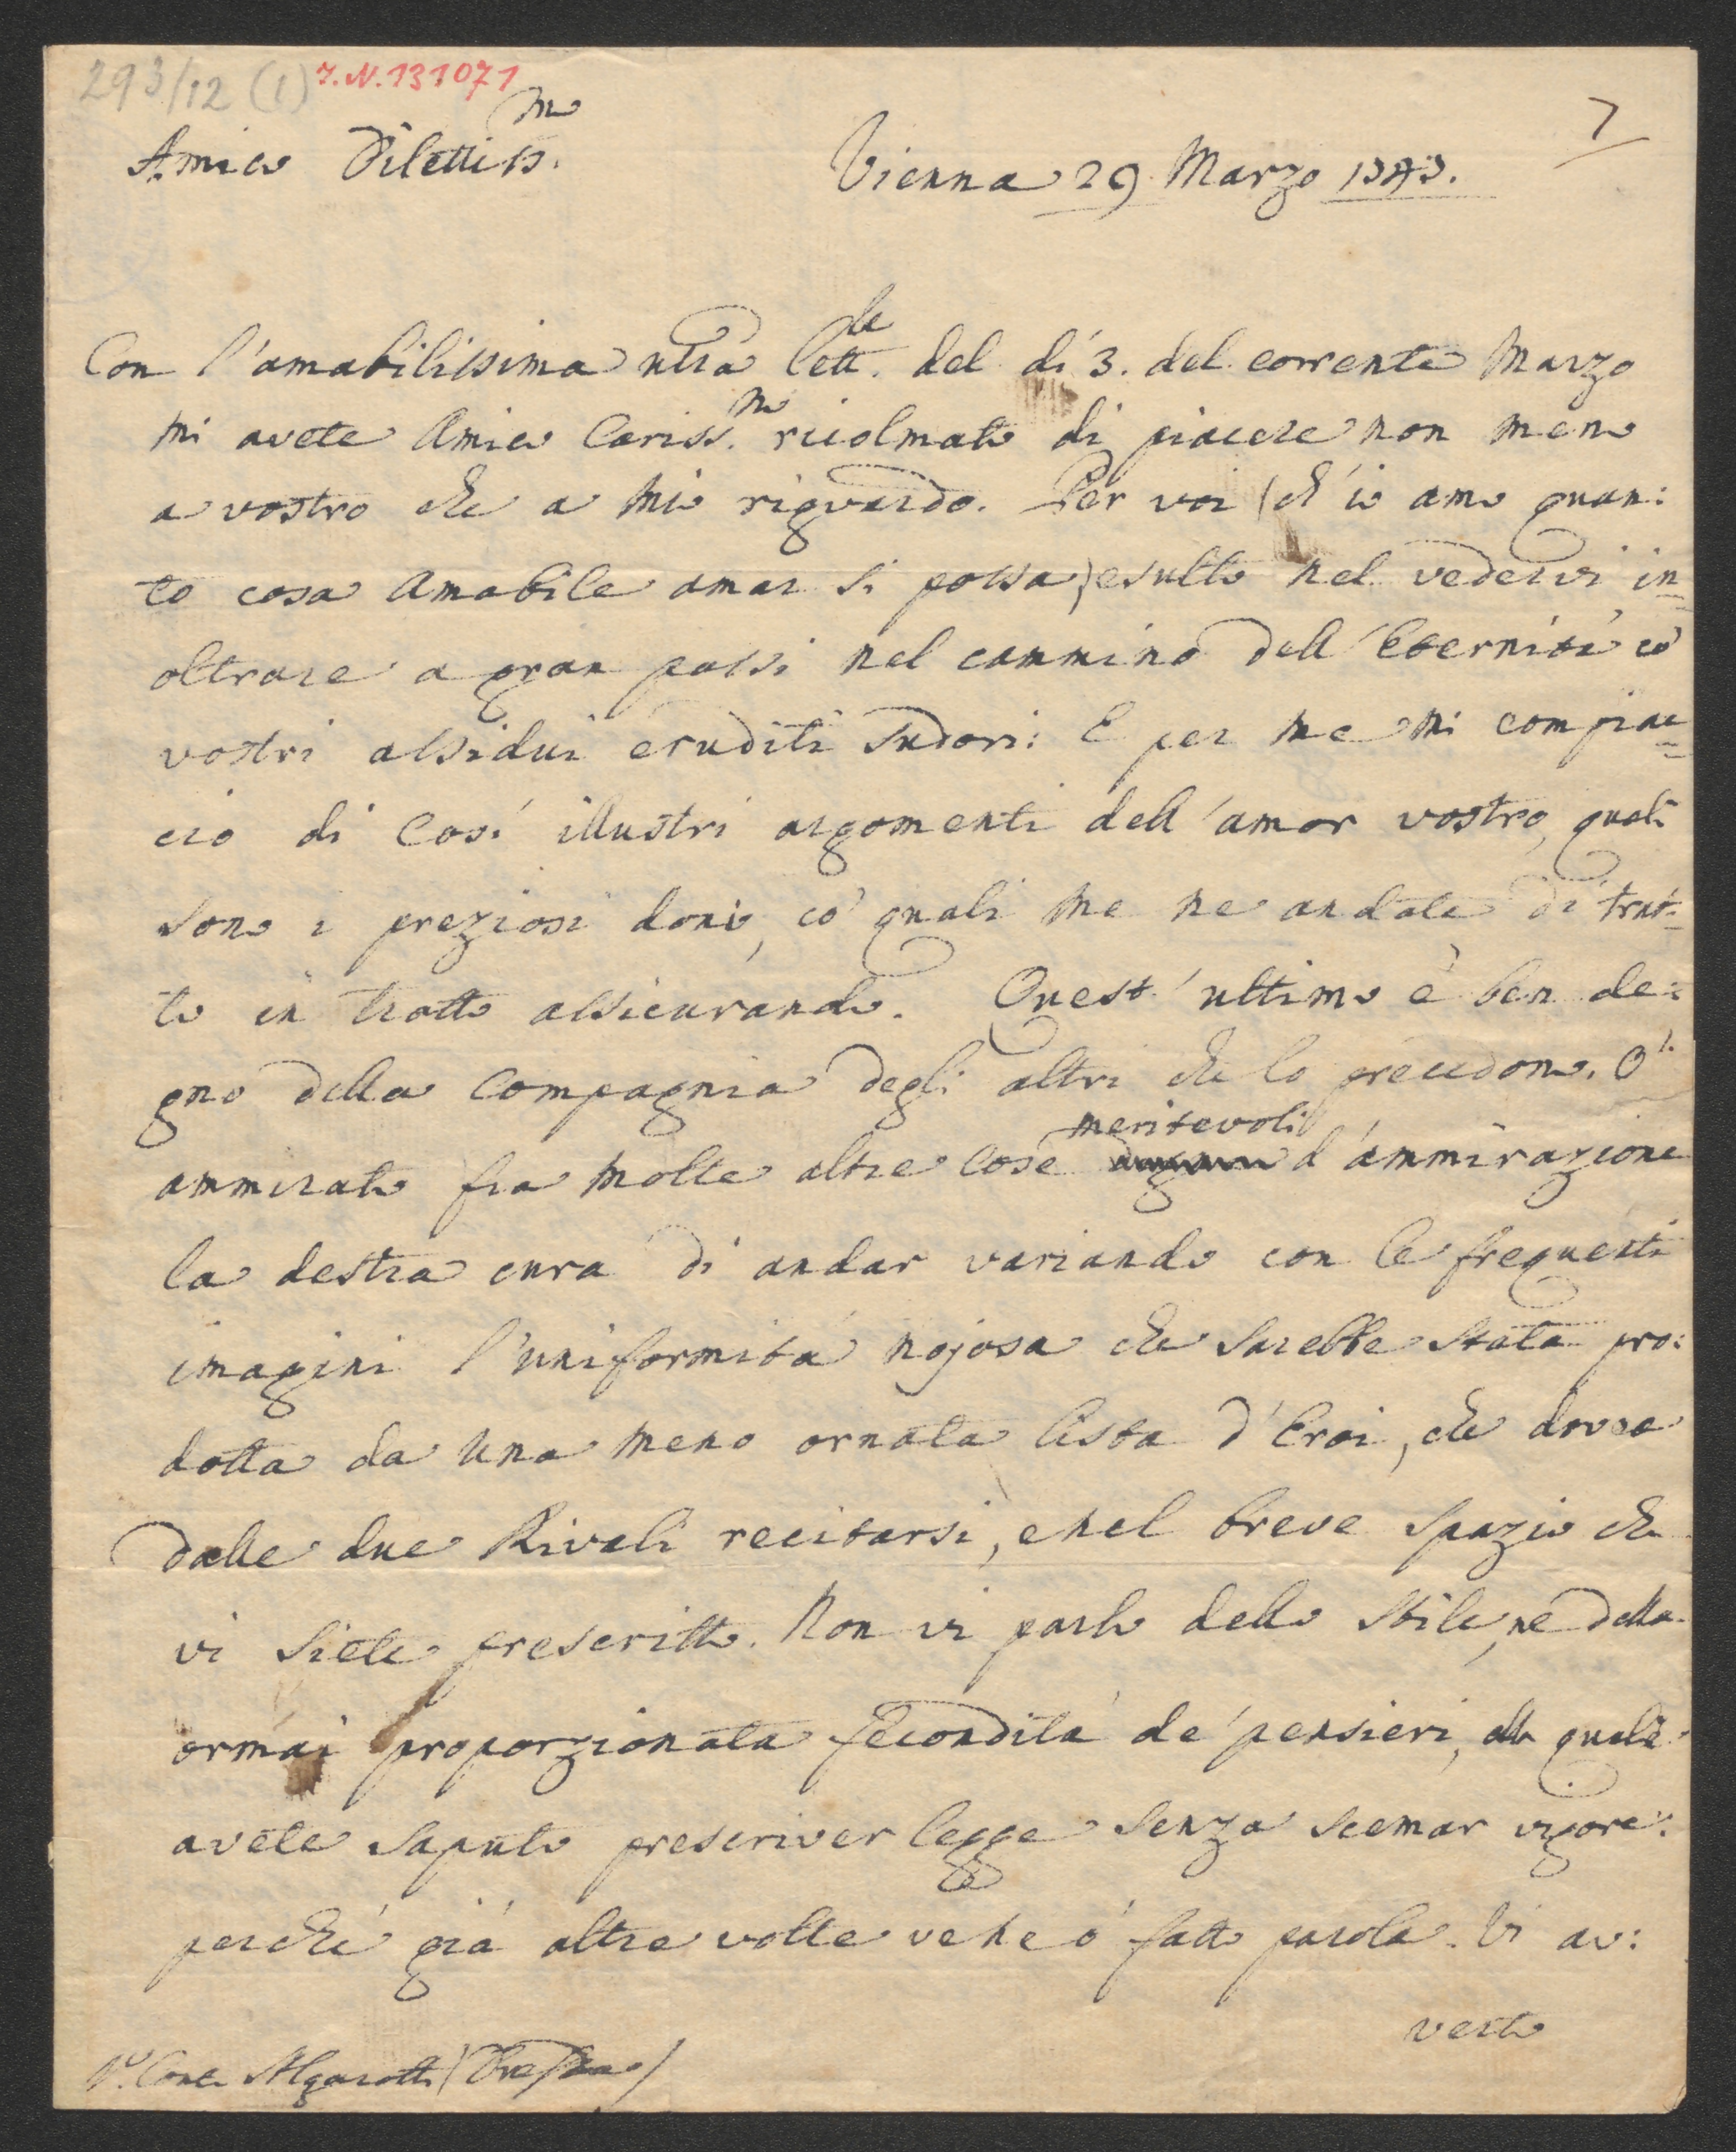 293/12 (1) I.N. 131071
7
Amico Dilettiss.mo
Vienna 29 Marzo 1743.
Con l'amabilissima vtrã Lett.le del dì 3. del corrente Marzo
mi avete Amico Cariss.mo ricolmato di piacere non meno
a vostro che a mio riguardo. Per voi (ch'io amo quan:
to cosa amabile amar si possa) esulto nel vedervi in=
oltrare a gran passi nel cammino dell'Eternità co'
vostri assidui eruditi sudori: E per me mi compiac=
cio di così illustri argomenti dell'amor vostro, quali
sono i preziosi doni, co' quali me ne andate di trat=
to in tratto assicurando. Quest'ultimo è ben de:
gno della compagnia degli altri che lo precedono. Ò
ammirato fra molte altre cose meritevoli d'ammirazione
la destra cura di andar variando con le frequenti
imagini l'uniformità nojosa che sarebbe stata pro:
dotta da una meno ornata lista d'Eroi, che dovea
dalle due Rivali recitarsi, e nel breve spazio che
vi siete prescritto. Non vi parlo dello stile, nè della
ormai proporzionata fecondità de' pensieri, alla quale
avete saputo prescriver legge senza scemar vigore:
perchè già altre volte ve ne ò fatto parola. Vi av:
verto
Conte Algarotti (Dresda)